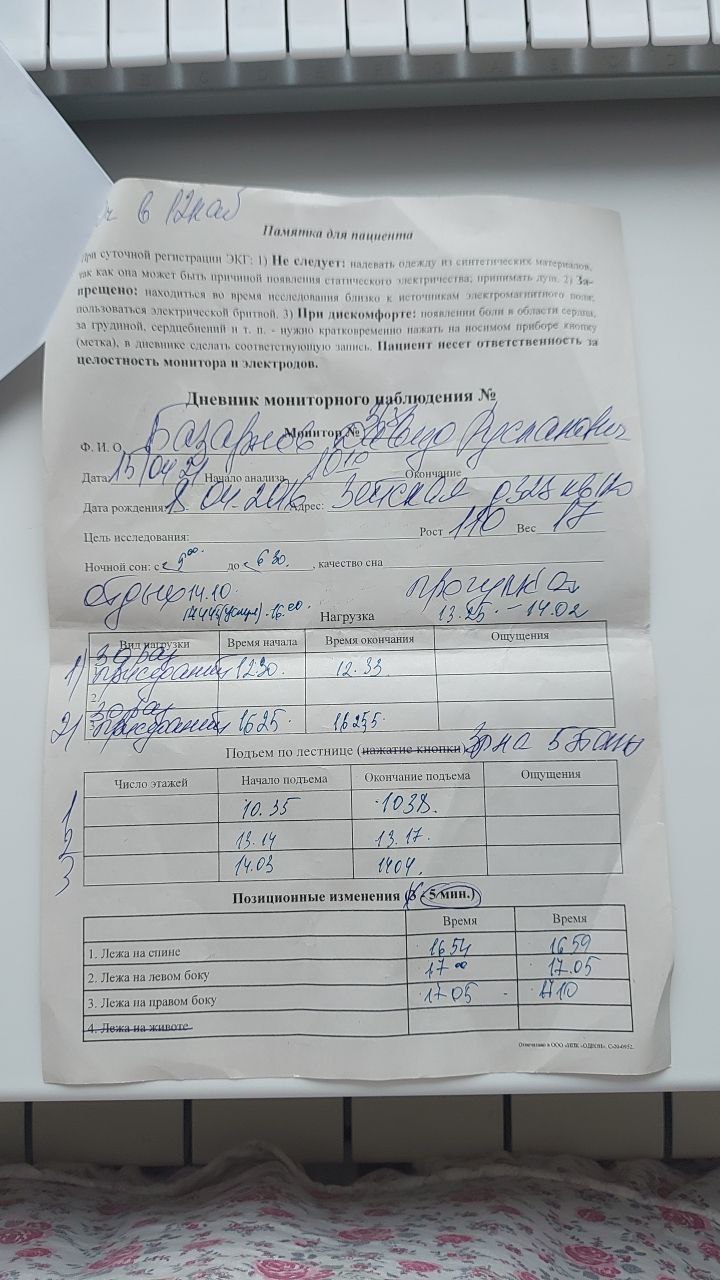 в 12 каб
Памятка для пациента
При суточной регистрации ЭКГ: 1) Не следует: надевать одежду из синтетических материалов,
так как она может быть причиной появления статического электричества; принимать душ. 2) За-
прещено: находиться во время исследования близко к источникам электромагнитного поля;
пользоваться электрической бритвой. 3) При дискомфорте: появлении боли в области сердца,
за грудиной, сердцебиений и т. п. - нужно кратковременно нажать на носимом приборе кнопку
(метка), в дневнике сделать соответствующую запись. Пациент несет ответственность за
целостность монитора и электродов.
Дневник мониторного наблюдения №
Монитор №
Ф. И. О. Русланович
Дата 15/04 21 Начало анализа 1010 Окончание
Дата рождения: 8.04.2016 Адрес: Зейская
Цель исследования: Рост 110 Вес 17
Ночной сон: с 9 00. до 6 30. , качество сна
отдых 14.10. прогулка
16.00. Нагрузка 13.25. - 14.02
Вид нагрузки Время начала Время окончания Ощущения
1) за раз приседания 1230. 12.33
2.
2) за раз приседания 1625. 16255.
Подъем по лестнице (нажатие кнопки) 3р на 5
Число этажей Начало подъема Окончание подъема Ощущения
1 10.35 1038.
2 13.14 13.17.
3 14.03 1404.
Позиционные изменения ( 5 мин.)
Время Время
1. Лежа на спине 1654 1659
2. Лежа на левом боку 17 00 17.05
3. Лежа на правом боку 17 05 - 1710
4. Лежа на животе
Отпечатано в ООО «НПК «ОДРОН». С-20-0952.